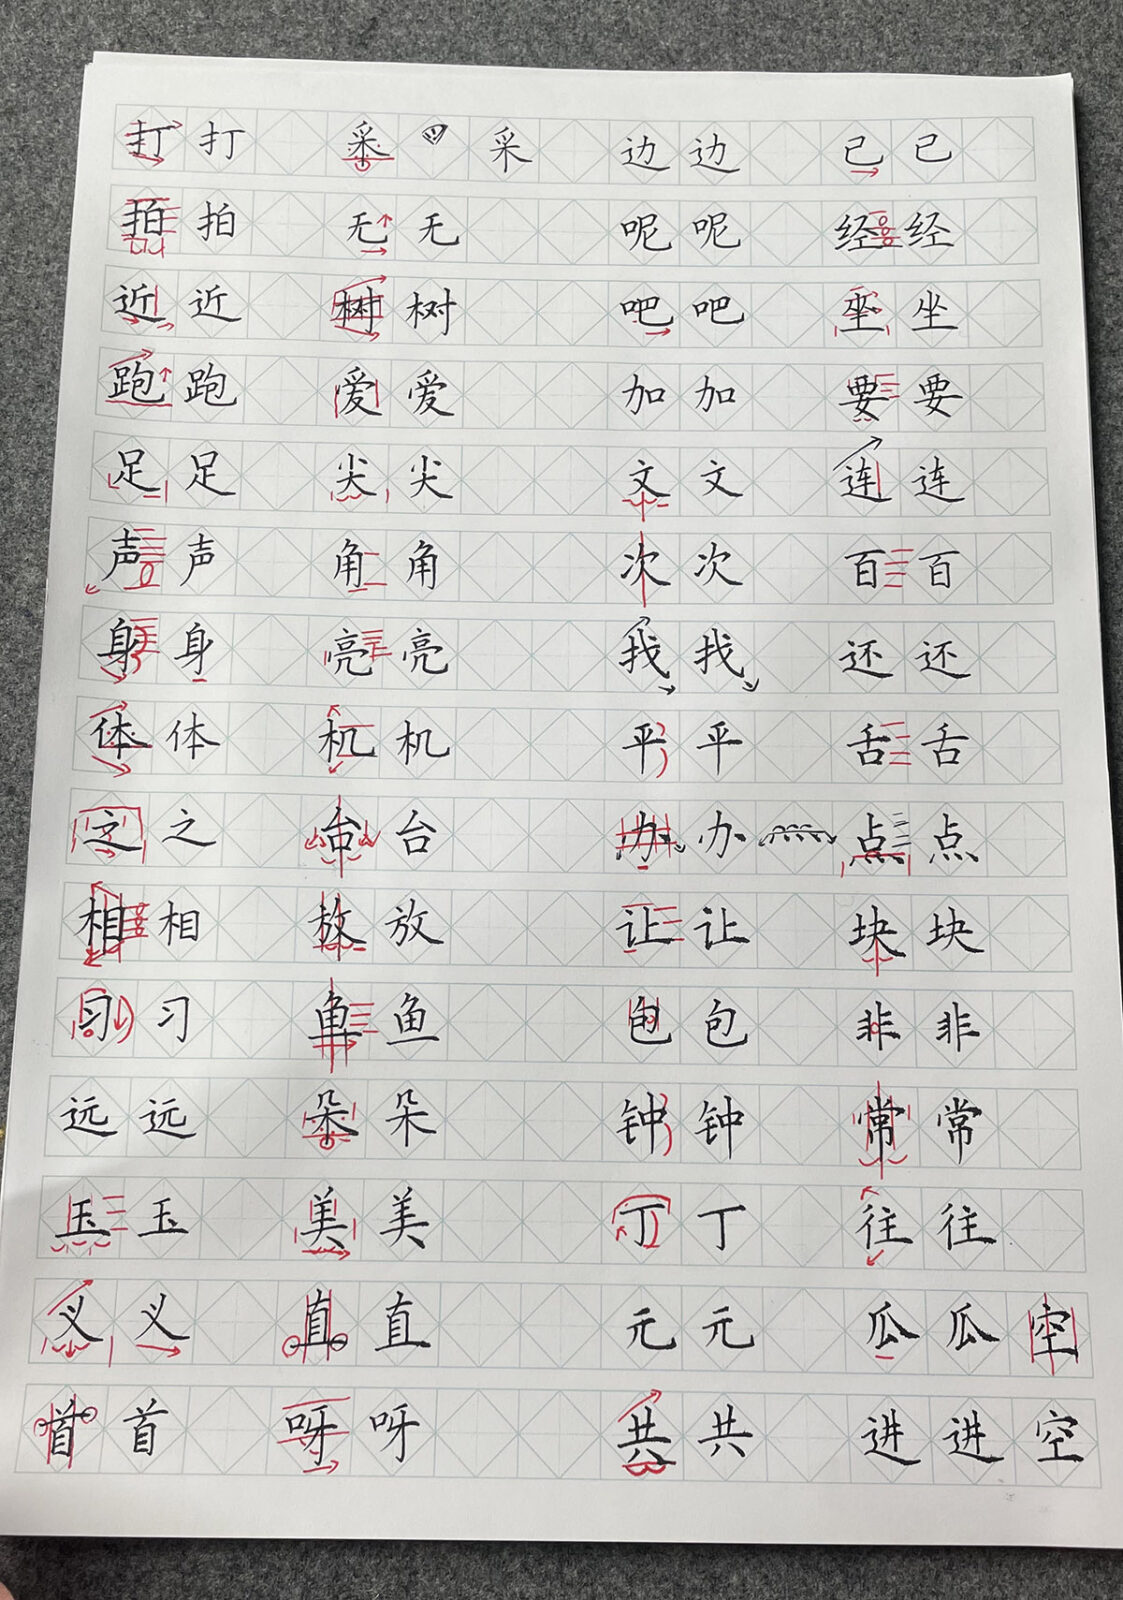 打 打 采 采 边 边 已 已
拍 拍 无 无 呢 呢 经 经
近 近 树 树 吧 吧 坐 坐
跑 跑 爱 爱 加 加 要 要
足 足 尖 尖 文 文 连 连
声 声 角 角 次 次 百 百
身 身 亮 亮 我 找 还 还
体 体 机 机 平 平 舌 舌
之 之 台 台 办 办 点 点
相 相 放 放 让 让 块 块
习 习 鱼 鱼 包 包 非 非
远 远 朵 朵 钟 钟 常 常
玉 玉 美 美 丁 丁 往 往
义 义 直 直 元 元 瓜 瓜 空
首 首 呀 呀 共 共 进 进 空